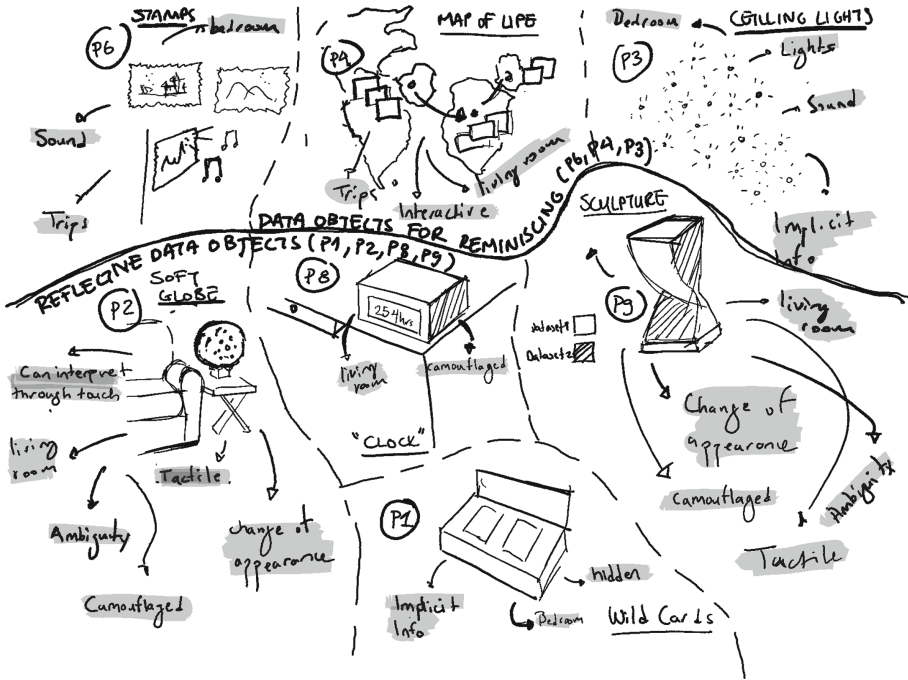 STAMPS
P6
bedroom
Sound
Trips
MAP OF LIFE
P4
Trips
Interactive
living room
CEILLING LIGHTS
Bedroom
P3
Lights
Sound
Implicit
Info
DATA OBJECTS FOR REMINISCING (P6, P4, P3)
REFLECTIVE DATA OBJECTS (P1, P2, P8, P9)
SOFT
GLOBE
P2
Can interpret
through touch
living
room
Tactile
Ambiguity
Camouflaged
change of
appearance
P8
254hrs
living
room
camouflaged
"CLOCK"
SCULPTURE
P9
Dataset1
Dataset2
living
room
Change of
appearance
Camouflaged
Ambiguity
Tactile
P1
hidden
Implicit
Info
Bedroom
Wild Cards